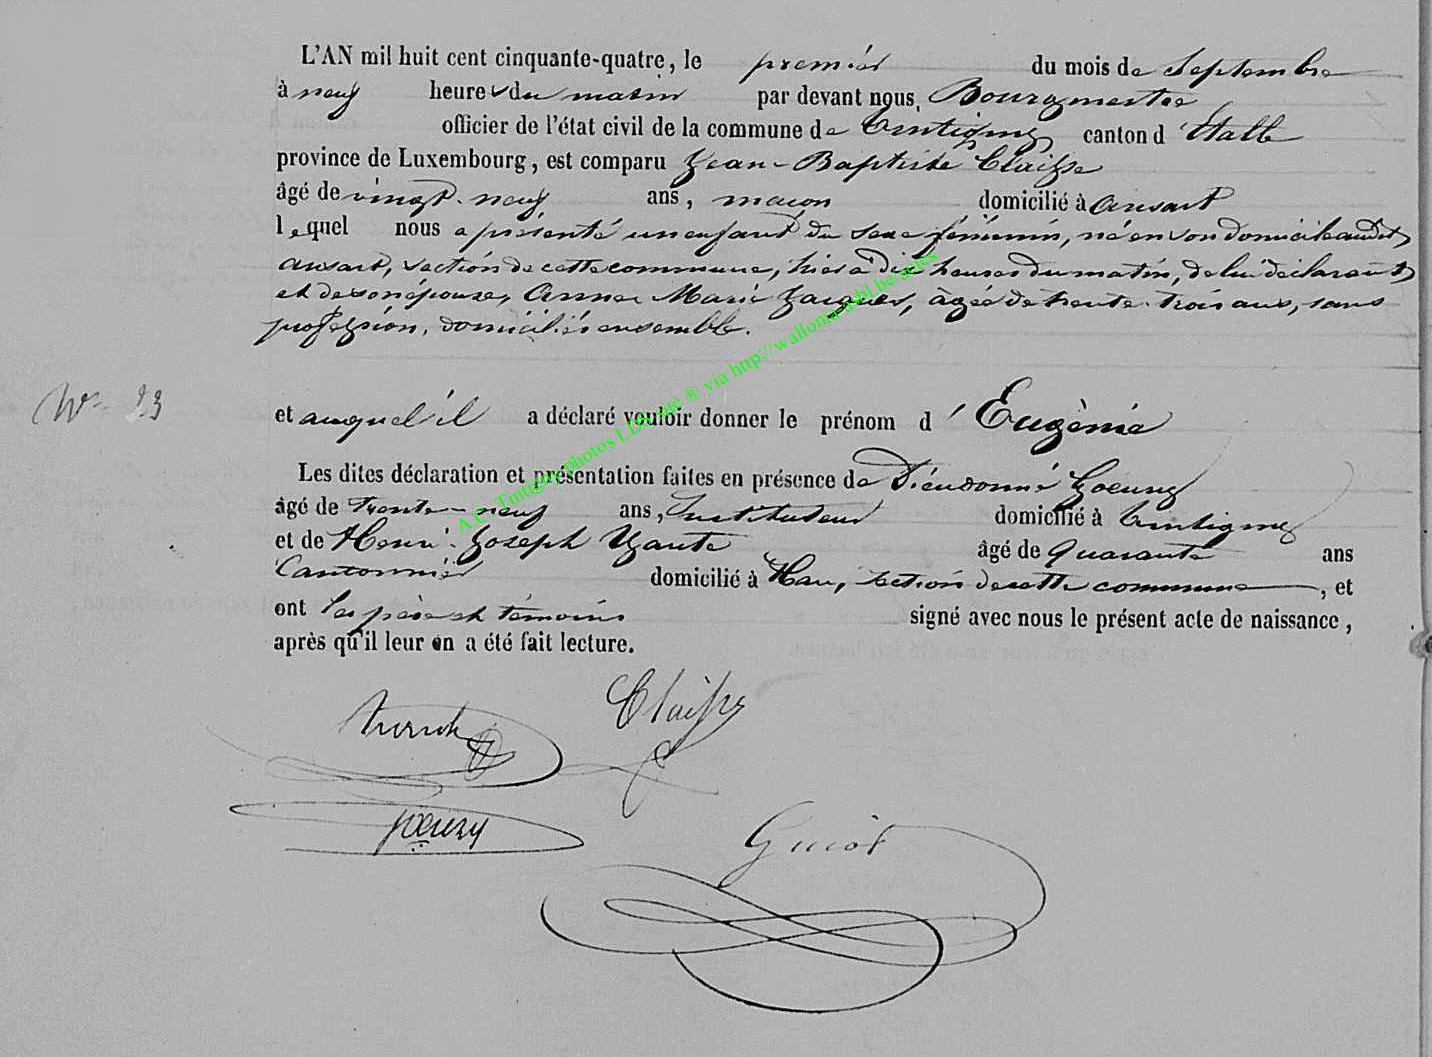 L'AN mil huit cent cinquante-quatre, le premier du mois de Septembre
à neuf heures du matin par devant nous, Bourgmestre
officier de l'état civil de la commune de Tintigny canton d'Etalle
province de Luxembourg, est comparu Jean-Baptiste Claisse
âgé de vingt-neuf ans, maçon domicilié à ansart
lequel nous a présenté un enfant du sexe féminin, né en son domicile audit
ansart, section de cette commune, hier à dix heures du matin, de lui déclarant
et de son épouse, Anne Marie Jacques, âgée de trente-trois ans, sans
profession, domiciliés ensemble.
N° 23 et auquel il a déclaré vouloir donner le prénom d'Eugènie
Les dites déclaration et présentation faites en présence de Dieudonné Goeury
âgé de trente-neuf ans, Instituteur domicilié à Tintigny
et de Henri-Joseph âgé de Quarante ans
Cantonnier domicilié à Han, section de cette commune, et
ont les père et témoins signé avec nous le présent acte de naissance,
après qu'il leur en a été fait lecture.
Claisse
Goeury
Guiot
A.C. Tintigny photos via http://wallonia-asbl.be/actes